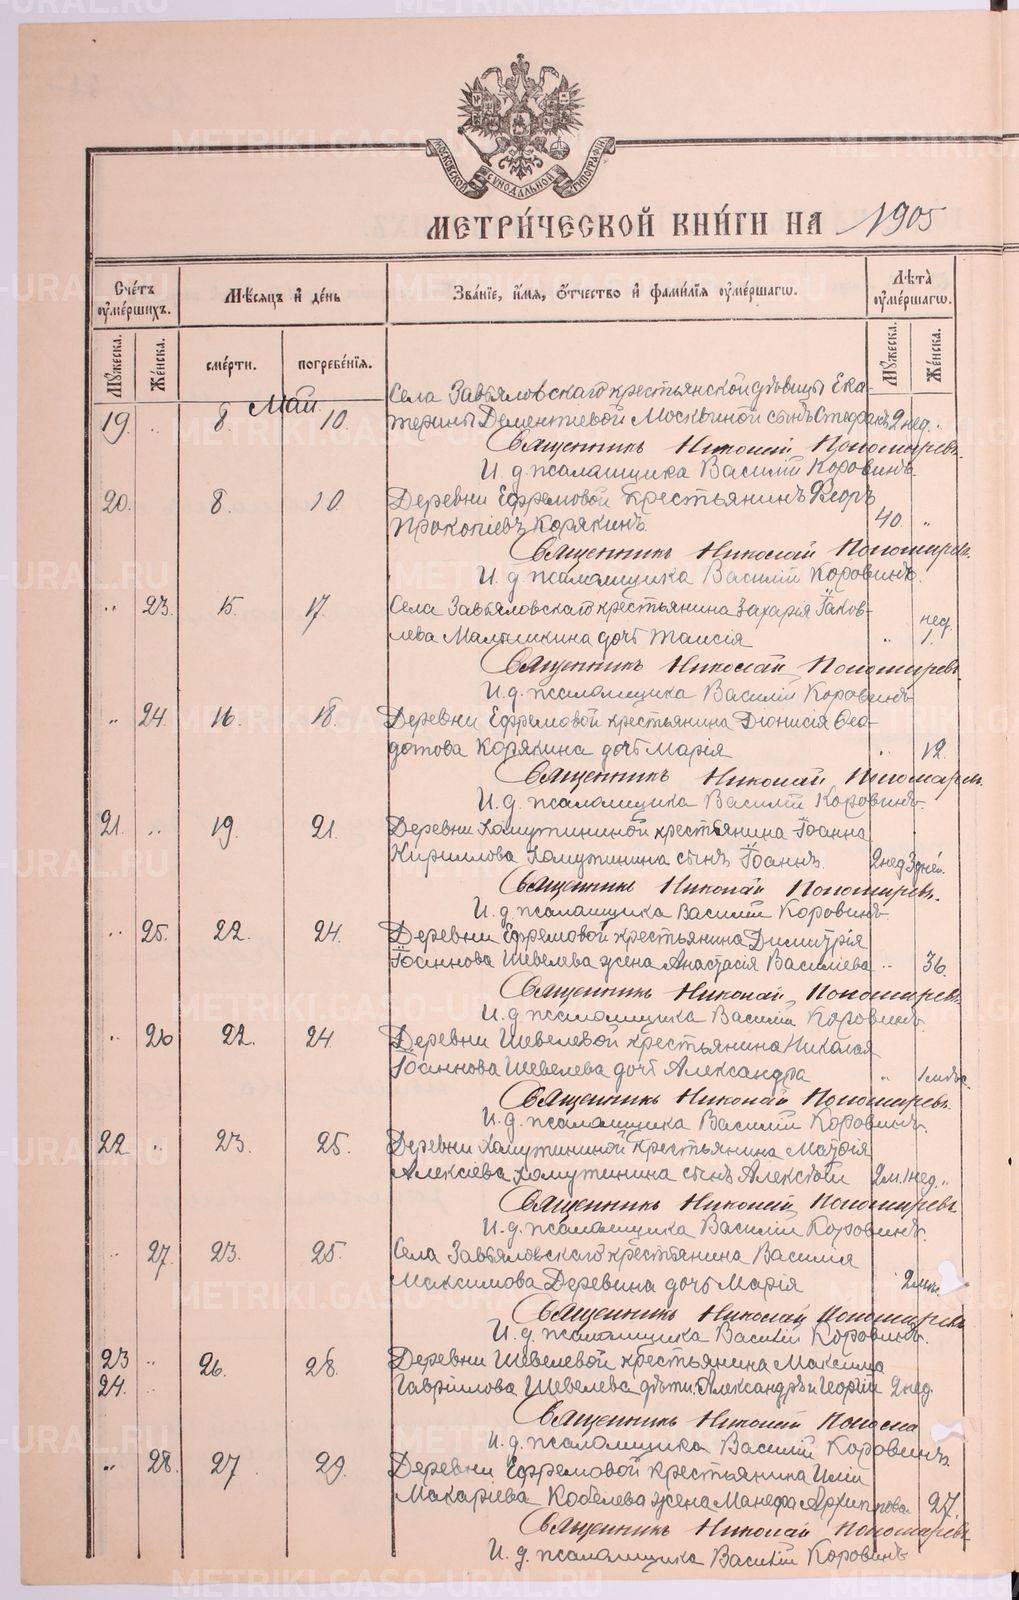 МОСКОВСКОЙ СѴНОДАЛЬНОЙ ТИПОГРАФІИ
МЕТРИ́ЧЕСКОЙ КНИ́ГИ НА 1905
Счётъ ᲂу҆ме́ршихъ. Мѣ́сяцъ и҆ де́нь Зва́нїе, и҆́мѧ, ѻ҆́тчество и҆ фами́лїѧ ᲂу҆ме́ршагѡ. Лѣта̀ ᲂу҆ме́ршагѡ.
Мꙋ́жеска. Же́нска. сме́рти. погребе́нїѧ. Мꙋ́жеска. Же́нска.
Май
Села Завьяловскаго крестьянской дѣвицы Ека-
19. „ 8. 10. терины Дементіевой Москвиной сынъ Стефанъ 2 нед. „
Священникъ Николай Пономаревъ.
И. д. псаломщика Василій Коровинъ
20. 8. 10 Деревни Ефремовой крестьянинъ Ѳеоръ
Прокопіевъ Корякинъ. 40 „
Священникъ Николай Пономаревъ.
И. д. псаломщика Василій Коровинъ.
„ 23. 15. 17. Села Завьяловскаго крестьянина Захарія Іаков-
лева Малышкина дочь Таисія „ нед. 1.
Священникъ Николай Пономаревъ.
И. д. псаломщика Василій Коровинъ
„ 24. 16. 18. Деревни Ефремовой крестьянина Діонисія Ѳео-
дотова Корякина дочь Марія „ 12.
Священникъ Николай Пономаревъ.
И. д. псаломщика Василій Коровинъ.
21. „ 19. 21. Деревни Хомутининой крестьянина Іоанна
Кириллова Хомутинина сынъ Іоаннъ. 2 нед 3 дней.
Священникъ Николай Пономаревъ.
И. д. псаломщика Василій Коровинъ
„ 25. 22. 24. Деревни Ефремовой крестьянина Димитрія
Іоаннова Шевелева жена Анастасія Василіева „ 36.
Священникъ Николай Пономаревъ.
И. д. псаломщика Василій Коровинъ
„ 26 22. 24. Деревни Шевелевой крестьянина Николая
Іоаннова Шевелева дочь Александра „ 1 мѣс.
Священникъ Николай Пономаревъ.
И. д. псаломщика Василій Коровинъ.
22 „ 23. 25. Деревни Хомутининой крестьянина Матѳія
Алексіева Хомутинина сынъ Алексѣй 2 м. 1 нед. „
Священникъ Николай Пономаревъ
И. д. псаломщика Василій Коровинъ.
„ 27. 23. 25. Села Завьяловскаго крестьянина Василія
Максимова Деревина дочь Марія 2 мѣс.
Священникъ Николай Пономаревъ
И. д. псаломщика Василій Коровинъ.
23 „ 26. 28. Деревни Шевелевой крестьянина Максима
24. „ Гавріилова Шевелева дѣти: Александръ и Георгій 2 нед.
Священникъ Николай
И. д. псаломщика Василій Коровинъ.
„ 28. 27. 29. Деревни Ефремовой крестьянина Иліи
Макаріева Кобелева жена Манефа Архиппова 27.
Священникъ Николай Пономаревъ
И. д. псаломщика Василій Коровинъ